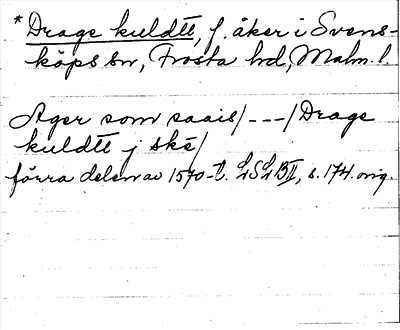 * Drage kuldtt, f. åker i Svens-
köps sn, Frosta hd, Malm. l.
Ager som saais/---/Drage
kuldtt j skê/
förra delen av 1570-t. LSLB II, s. 174. orig.